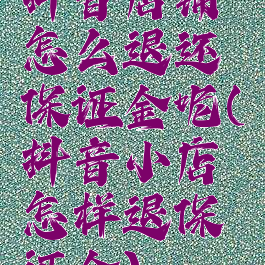 抖音店铺
怎么退还
保证金呢(
抖音小店
怎样退保
证金)